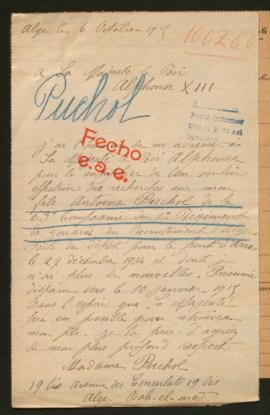 Alger le 6 Octobre 1915
100260
à Sa Majesté le Roi
Alphonse XIII
Puchol
Fecho
e.a.e.
j'ai de m'adresser à
Sa Majesté le Roi Alphonse
pour le supplier de bien vouloir
effectuer des recherches sur mon
fils Antoine Puchol de la
Compagnie du Regiment
de zouaves du Recrutement d'Alger
parti du dépôt pour le front
le 29 décembre 1914 et dont je
n'ai plus de nouvelles. Présumé
disparu vers le 10 janvier 1915
Dans l'espoir que Sa Majesté
fera son possible pour retrouver
mon fils je la prie d'agréer
de mon plus profond respect
Madame Puchol
19 bis avenue des Consulats 19 bis
Alger Bab-el-oued